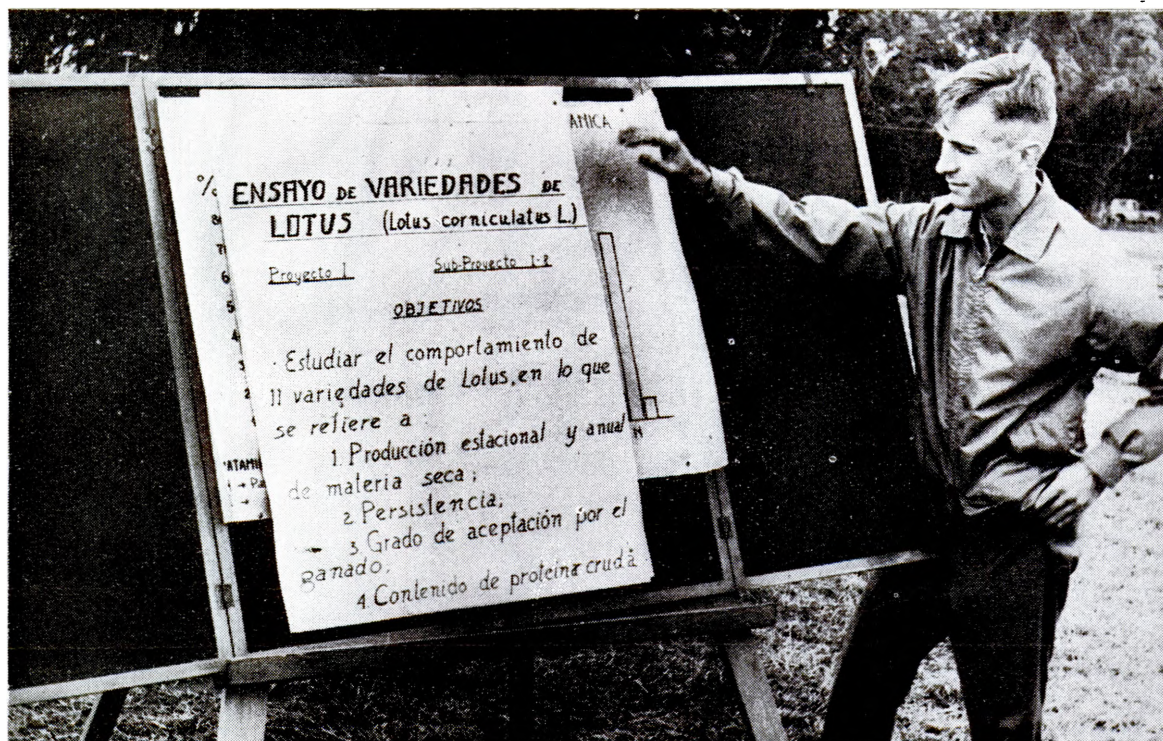 ENSAYO DE VARIEDADES DE
LOTUS (Lotus corniculatus L.)
Proyecto I Sub-Proyecto I-2
OBJETIVOS
· Estudiar el comportamiento de
11 variedades de Lotus, en lo que
se refiere a :
1. Producción estacional y anual
de materia seca ;
2. Persistencia,
3. Grado de aceptación por el
ganado,
4. Contenido de proteina cruda
%
AMICA
M